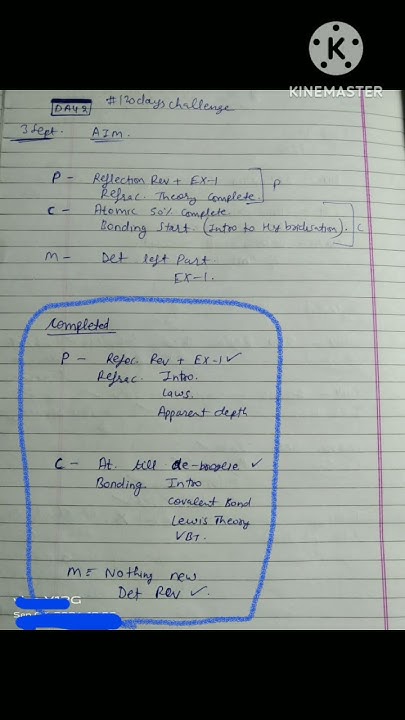 KINEMASTER
DAY 2 #120days challenge
3 Sept. AIM.
P - Reflection Rev + EX-1
Refrac. Theory Complete. P
C - Atomic 50% Complete.
Bonding Start. (Intro to Hybridisation). C
M - Det left Part
EX-1.
Completed
P - Reflec. Rev + EX-1 ✓
Refrac. Intro.
Laws.
Apparent depth
C - At. till de-broglie ✓
Bonding Intro
Covalent Bond
Lewis Theory
VBT.
M = Nothing new
Det Rev ✓.